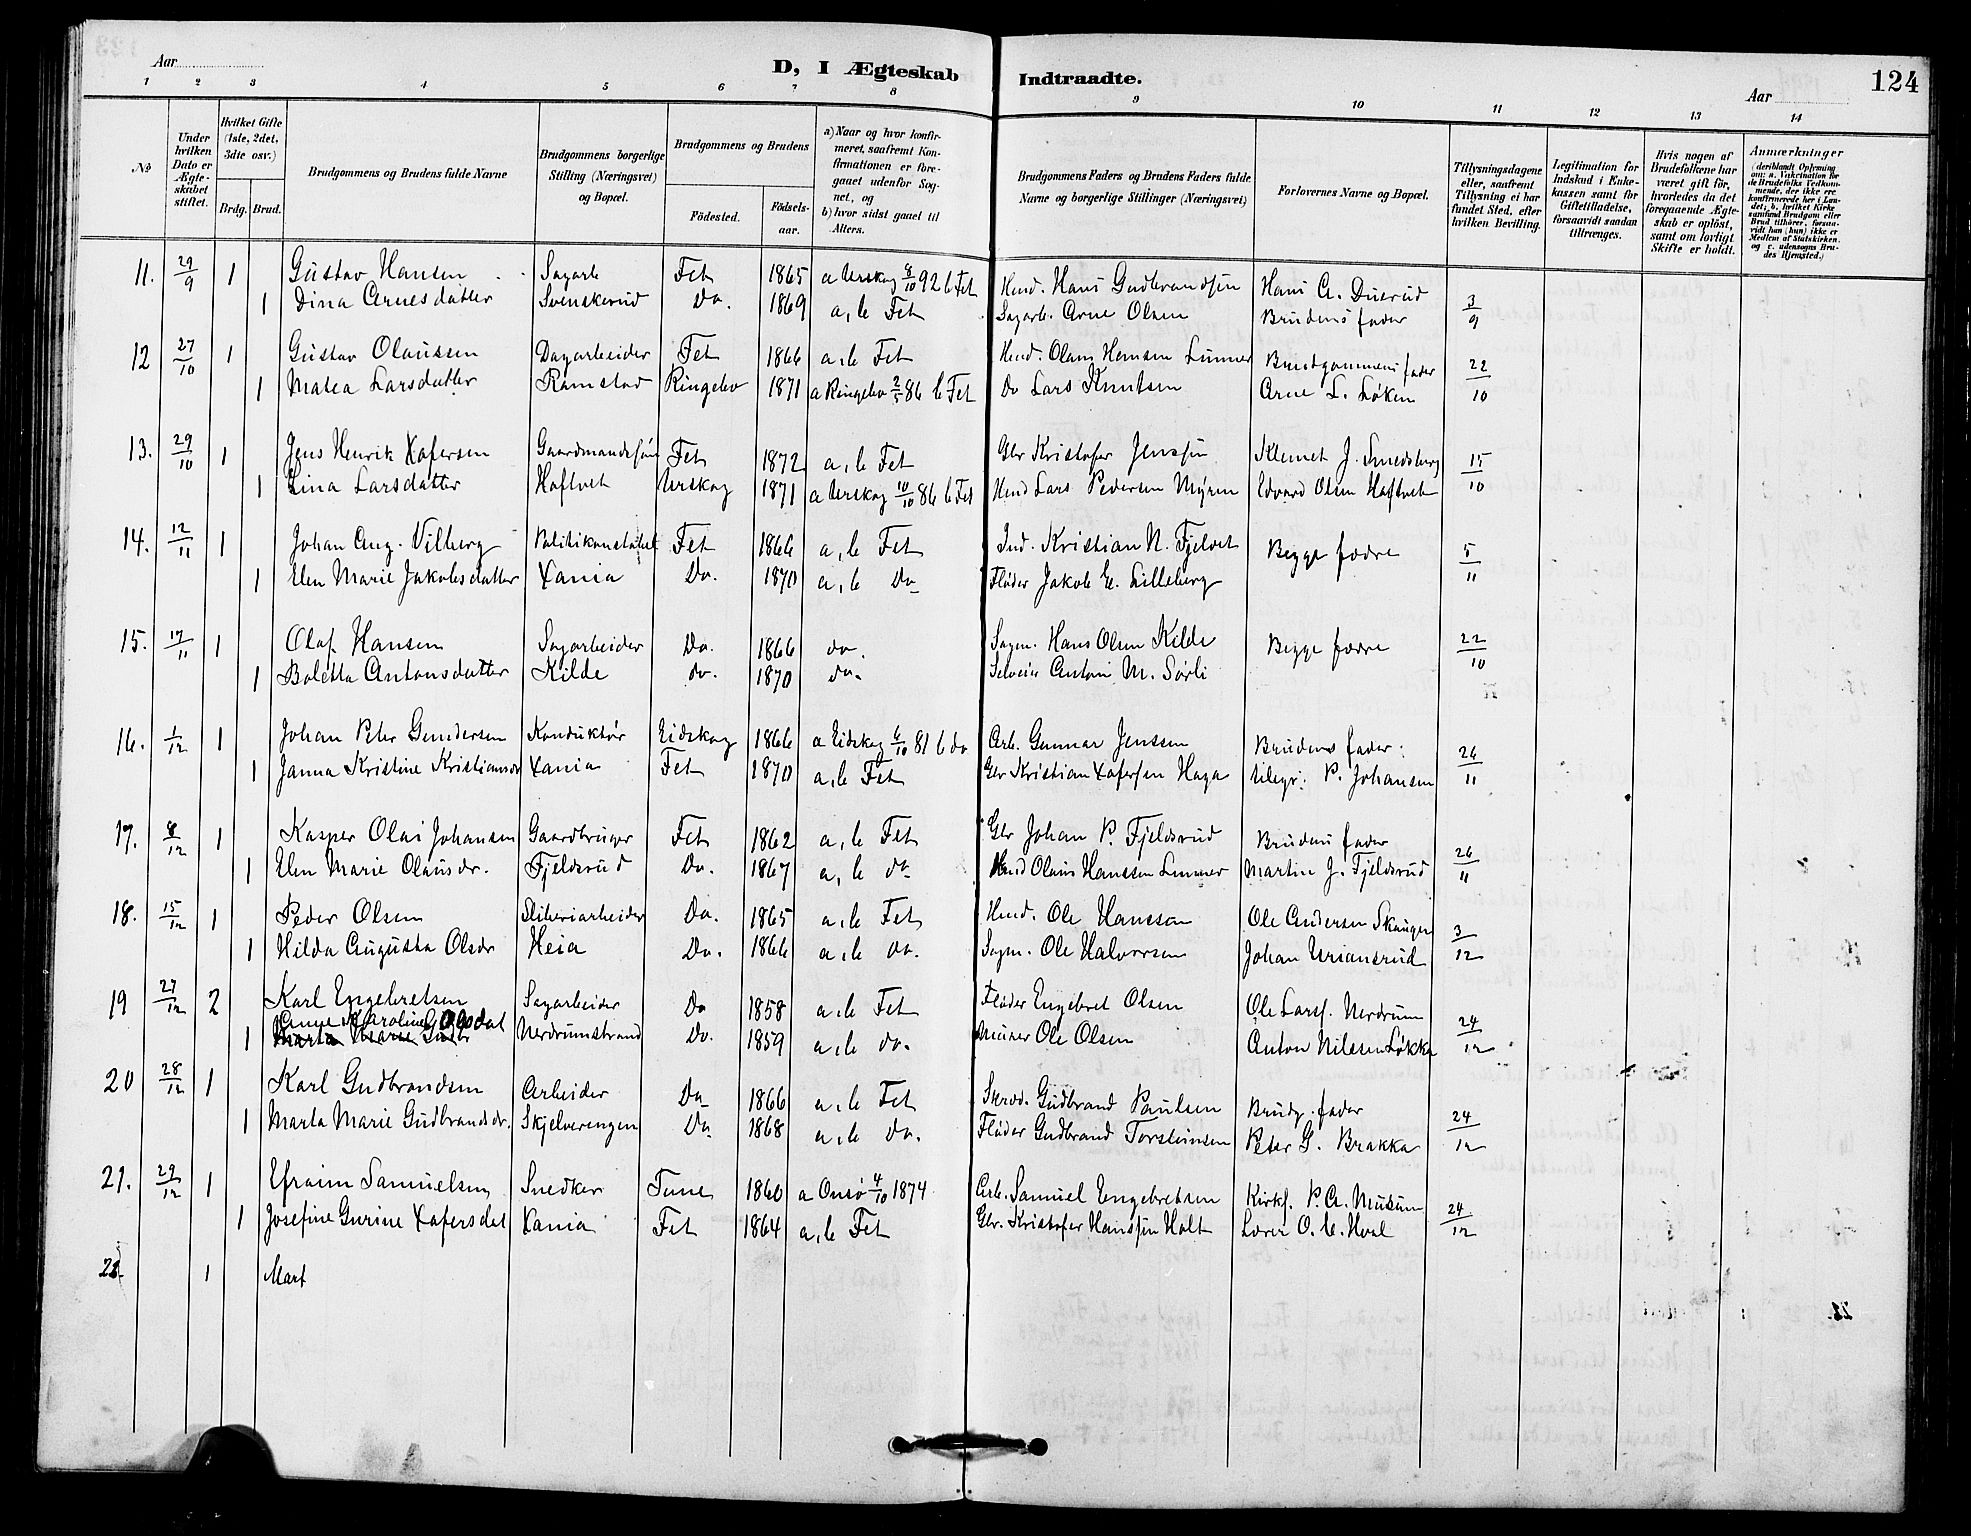 Aar
D, I Ægteskab Indtraadte.
Aar
124
1 2 3 4 5 6 7 8 9 10 11 12 13 14
No
Under hvilken Dato er Ægteskabet stiftet.
Hvilket Gifte (1ste, 2det, 3die osv.)
Brdg. Brud.
Brudgommens og Brudens fulde Navne
Brudgommens borgerlige Stilling (Næringsvei) og Bopæl.
Brudgommens og Brudens
Födested.
Födselsaar.
a) Naar og hvor konfirmeret, saafremt Konfirmationen er foregaaet udenfor Sognet, og
b) hvor sidst gaaet til Alters.
Brudgommens Faders og Brudens Faders fulde Navne og borgerlige Stillinger (Næringsvei)
Forlovernes Navne og Bopæl.
Tillysningsdagene eller, saafremt Tillysning ei har fundet Sted, efter hvilken Bevilling.
Legitimation for Indskud i Enkekassen samt for Giftetilladelse, forsaavidt saadan tiltrænges.
Hvis nogen af Brudefolkene har været gift för, hvorledes da det foregaaende Ægteskab er oplöst, samt om lovligt Skifte er holdt.
Anmærkninger
11. 29/9 1 Gustav Hansen Sagarb Fet 1865 a Urskog 8/10 92 b Fet Husd. Hans Gudbrandsen Hans A. Duerud 3/9
1 Dina Arnesdatter Svenskerud Do. 1869 a, b Fet Sagarb. Arne Olsen Brudens fader
12 27/10 1 Gustav Olaussen Dagarbeider Fet 1866 a.b Fet Husd. Olaus Hansen Linner Brudgommens fader 22/10
1 Matea Larsdatter Ramstad Ringebo 1871 a Ringebo 2/5 86 b Fet Do Lars Knutsen Arne L. Løken
13. 29/10 1 Jens Henrik Xofersen Gaardmandssøn Fet 1872 a, b Fet Gbr Kristofer Jenssen Klemet J. Smedsberg 15/10
1 Lina Larsdatter Haftvet Urskog 1871 a Urskog 10/10 86 b Fet Husd Lars Pedersen Myren Edvard Olsen Haftvet
14. 12/11 1 Johan Aug. Vilberg Politikonstabel Fet 1866 a, b Fet Ind. Kristian N. Fjelvet Begge fædre 5/11
1 Elen Marie Jakobsdatter Xania Do. 1870 a, b Do Fløder Jakob E. Lilleberg
15. 17/11 1 Olaf Hansen Sagarbeider Do. 1866 do. Sagm. Hans Olsen Kilde Begge fædre 22/10
1 Boletta Antonsdatter Kilde do. 1870 do. Selveier Anton M. Sørli
16. 1/12 1 Johan Peter Gundersen Konduktør Eidskog 1866 a Eidskog 6/10 81 b do Arb. Gunnar Jenssen Brudens fader: 26/11
1 Janna Kristine Kristiansdr Xania Fet 1870 a, b Fet Gbr Kristian Xofersen Haga P. Johansen
17. 8/12 1 Kasper Olai Johansen Gaardbruger Fet 1862 a, b Fet Gbr Johan P. Fjeldsrud Brudens fader 26/11
1 Elen Marie Olausdr. Fjeldsrud Do. 1867 a, b do Husd Olaus Hanssen Linner Martin J. Fjeldsrud
18. 15/12 1 Peder Olsen Sliberiarbeider Do. 1865 a, b Fet Husd. Ole Hanssen Ole Andersen Skaugen 3/12
1 Hilda Augusta Olsdr Heia Do. 1866 a.b do. Sagm. Ole Halvorsen Johan Uriansrud
19 27/12 2 Karl Engebretsen Sagarbeider Do 1858 a, b Fet Fløder Engebret Olsen Ole Larss. Nerdrum 24/12
1 Anne Karoline Olsdat Nerdrumstrand Do. 1859 a, b do. Ole Olsen Anton Nilssen Løkka
20 28/12 1 Karl Gudbrandsen Arbeider Do 1866 a, b Fet Skræd. Gudbrand Paulsen Brudg. fader 24/12
1 Marta Marie Gudbrandsdr. Skjelverengen Do. 1868 a, b do. Fløder Gudbrand Torsteinsen Peter G. Brakka
21. 29/12 1 Efraim Samuelsen Snedker Tune 1860 a Onsø 4/10 1874 Arb. Samuel Engebretsen Kirks. P. A. Musum 24/12
1 Josefine Gurine Xofersdat Xania Fet 1864 a, b Fet Gbr. Kristofer Hanssen Holt Lærer O. C. Hval
22. 1 Mart